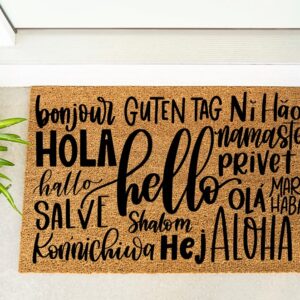 bonjour GUTEN TAG Ni Hǎo
HOLA hello namaste
privet
hallo OLÁ MAR
HABA
SALVE Shalom
Konnichiwa Hej ALOHA